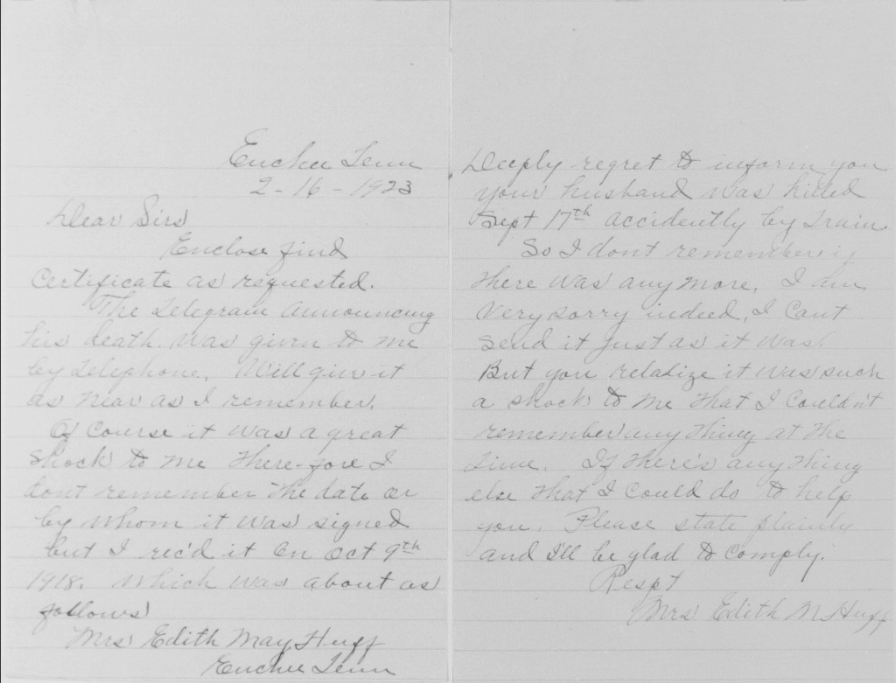 Euchee Tenn
2-16-1923
Dear Sirs
Enclose find
Certificate as requested.
The Telegram announcing
his death. Was given to me
by Telephone. Will give it
as near as I remember.
Of Course it was a great
Shock to me there-fore I
dont remember the date or
by whom it was signed
but I rec'd it on Oct 9th
1918. Which was about as
follows
Mrs Edith May Huff
Euchee Tenn
Deeply regret to inform you
your husband was killed
Sept 17th accidently by train
So I dont remember if
there was any more. I am
Very sorry indeed, I Cant
Send it just as it was
But you relalize it was such
a shock to me that I Couldn't
remember any thing at the
time. If there's any thing
else that I could do to help
you. Please state plainly
and I'll be glad to Comply.
Respt
Mrs Edith M Huff